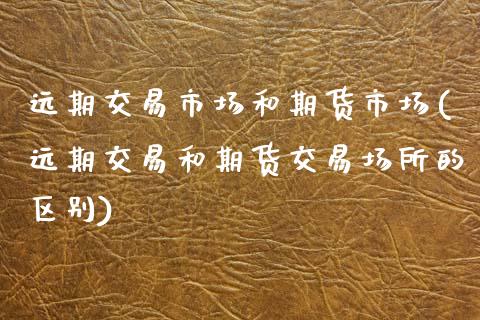 远期交易市场和期货市场(
远期交易和期货交易场所的
区别)